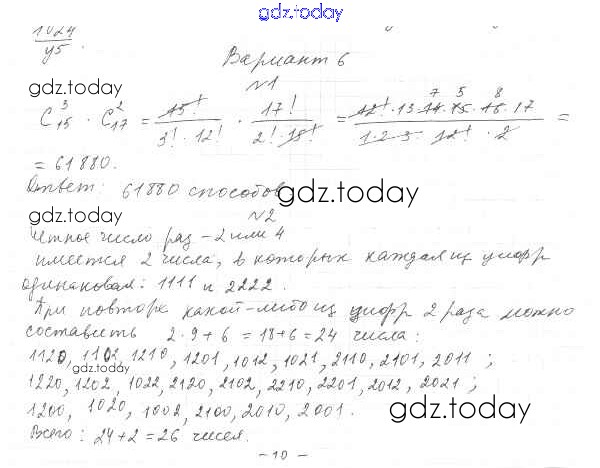 gdz.today
1024
y5
Вариант 6
gdz.today
N1
C³₁₅ · C²₁₇ = 15!/(3!·12!) · 17!/(2!·15!) = (12!·13·14·15·16·17)/(1·2·3·12!·2) =
7 5 8
= 61880.
Ответ: 61880 способов.
gdz.today
gdz.today
N2
Четное число раз – 2 или 4
имеется 2 числа, в которых каждая из цифр
одинаковая: 1111 и 2222.
При повторе какой-либо из цифр 2 раза можно
составить 2·9+6=18+6=24 числа:
1120, 1102, 1210, 1201, 1012, 1021, 2110, 2101, 2011;
gdz.today
1220, 1202, 1022, 2120, 2102, 2210, 2201, 2012, 2021;
1200, 1020, 1002, 2100, 2010, 2001.
gdz.today
Всего: 24+2=26 чисел.
– 10 –